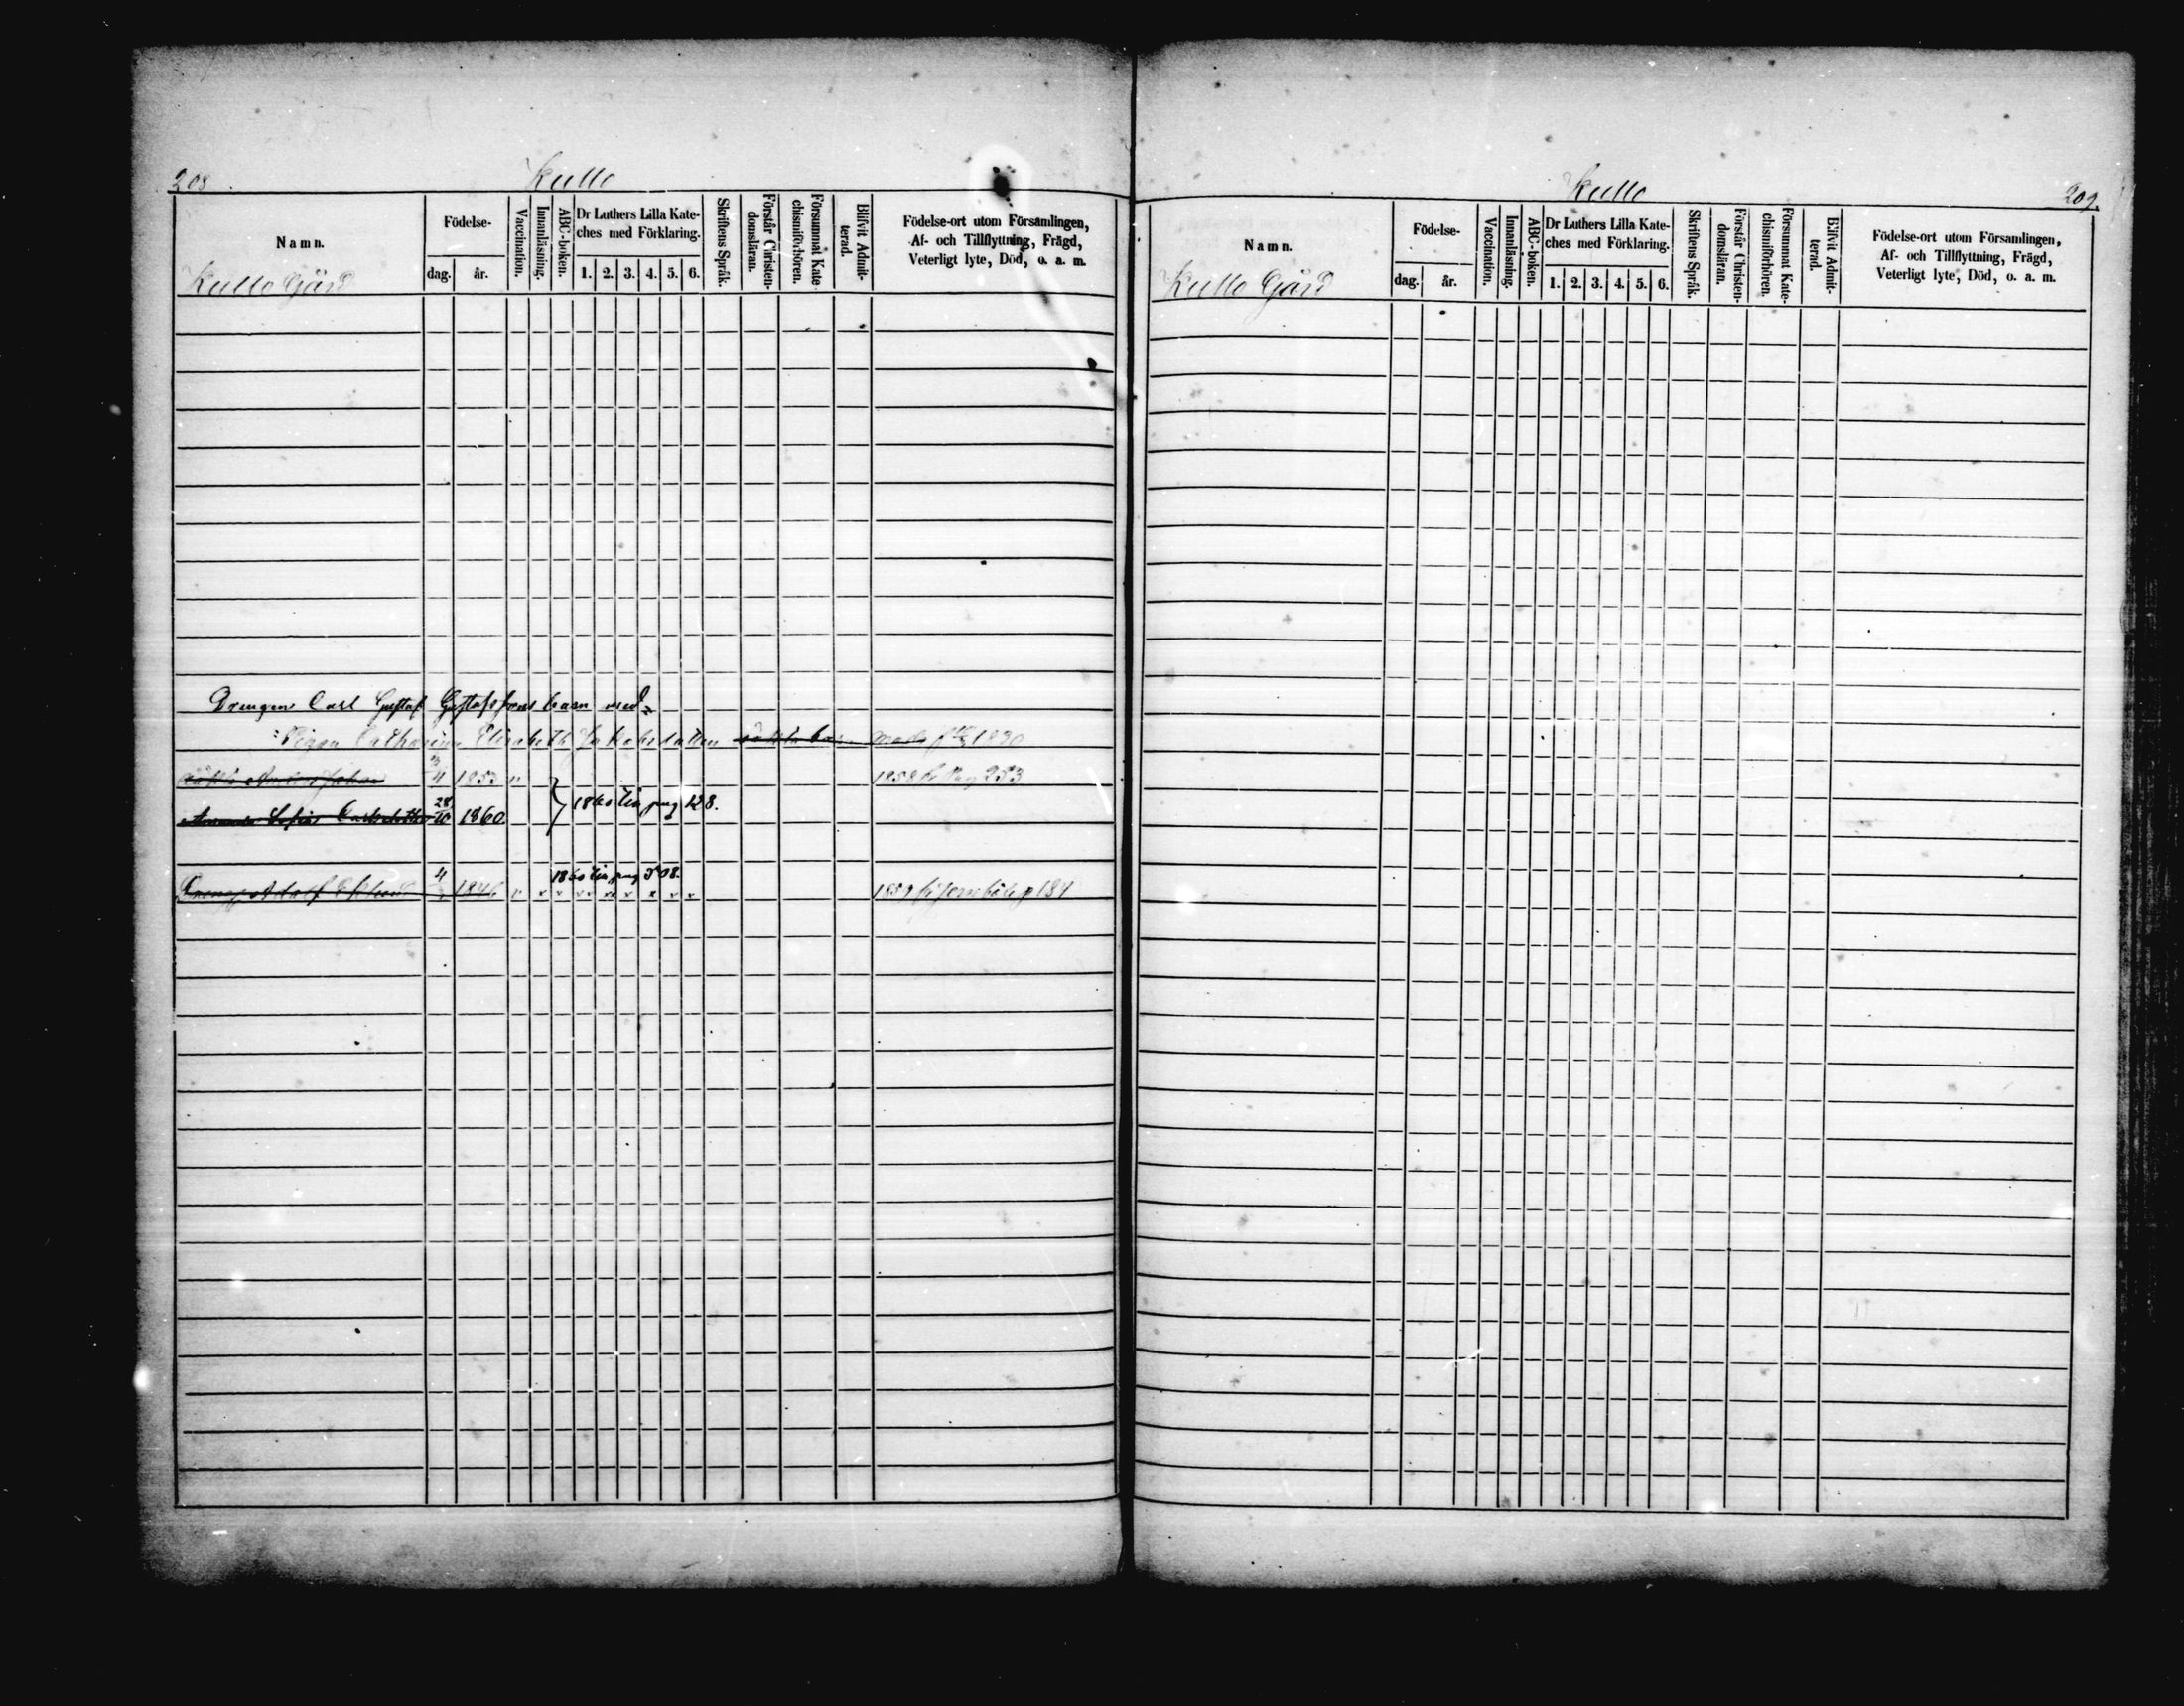 208 Kullo
Namn. Födelse- dag. år. Vaccination. Innanläsning. ABC-boken. Dr Luthers Lilla Kate-ches med Förklaring. 1. 2. 3. 4. 5. 6. Skriftens Språk. Förstår Christen-domsläran. Försummat Kate-chismiförhören. Blifvit Admit-terad. Födelse-ort utom Församlingen, Af- och Tillflyttning, Frägd, Veterligt lyte, Död, o. a. m.
Kullo Gård
Drengen Carl Gustaf Gustafssons barn med
Pigan Catharina Elisabeth Jakobsdotter 1830
Anders Johan 4 1853 " 1858 fr Pag 253
Sofia Carlsdotter 28/10 1860 1860 till pag 128.
1860 till pag 308.
Adolf 4 1846 1859 fr p 184
Kullo 209.
Namn. Födelse- dag. år. Vaccination. Innanläsning. ABC-boken. Dr Luthers Lilla Kate-ches med Förklaring. 1. 2. 3. 4. 5. 6. Skriftens Språk. Förstår Christen-domsläran. Försummat Kate-chismiförhören. Blifvit Admit-terad. Födelse-ort utom Församlingen, Af- och Tillflyttning, Frägd, Veterligt lyte, Död, o. a. m.
Kullo Gård